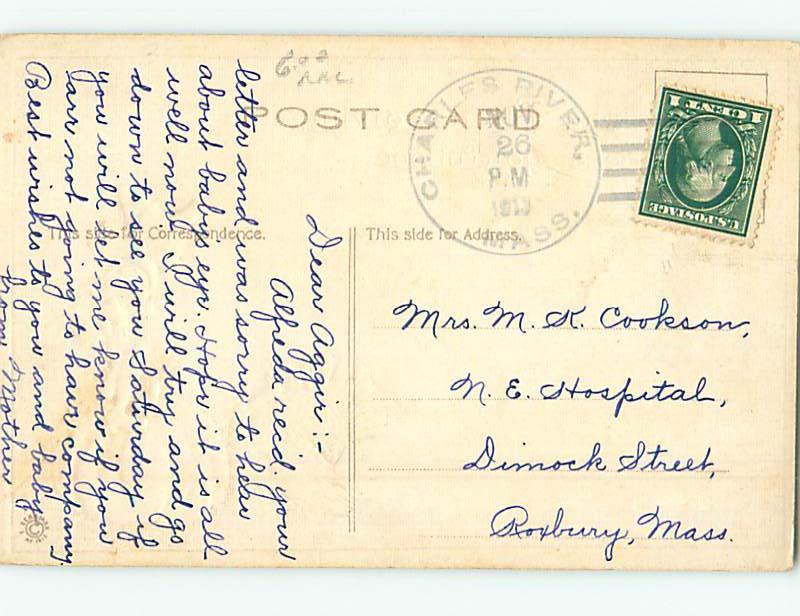 6.02
POST CARD
CHARLES RIVER,
JUN
26
P.M
1913
MASS.
1 CENT 1
U.S. POSTAGE
This side for Correspondence.
This side for Address.
Dear Aggie:-
Alfreda rec'd your
letter and was sorry to hear
about baby's eye. Hope it is all
well now. I will try and go
down to see you Saturday if
you will let me know if you
are not going to have company.
Best wishes to you and baby
from Mother
Mrs. M. K. Cookson,
N. E. Hospital,
Dimock Street,
Roxbury, Mass.